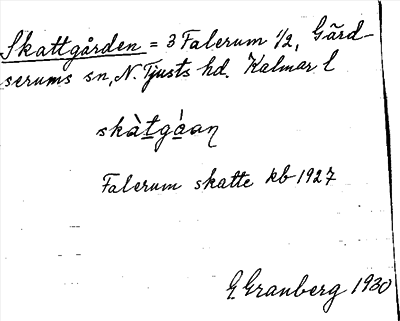 Skattgården = 3 Falerum 1/2, Gärd-
serums sn, N. Tjusts hd. Kalmar l
skàtgáan
Falerum skatte kb 1927
G. Granberg 1930